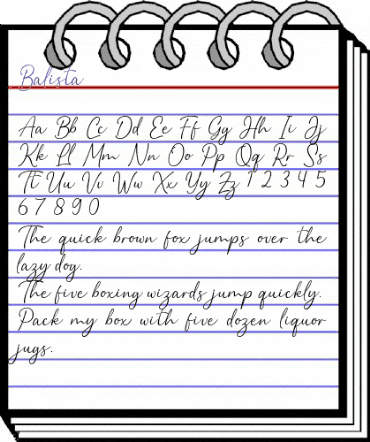 Balista
Aa Bb Cc Dd Ee Ff Gg Hh Ii Jj
Kk Ll Mm Nn Oo Pp Qq Rr Ss
Tt Uu Vv Ww Xx Yy Zz 1 2 3 4 5
6 7 8 9 0
The quick brown fox jumps over the
lazy dog.
The five boxing wizards jump quickly.
Pack my box with five dozen liquor
jugs.